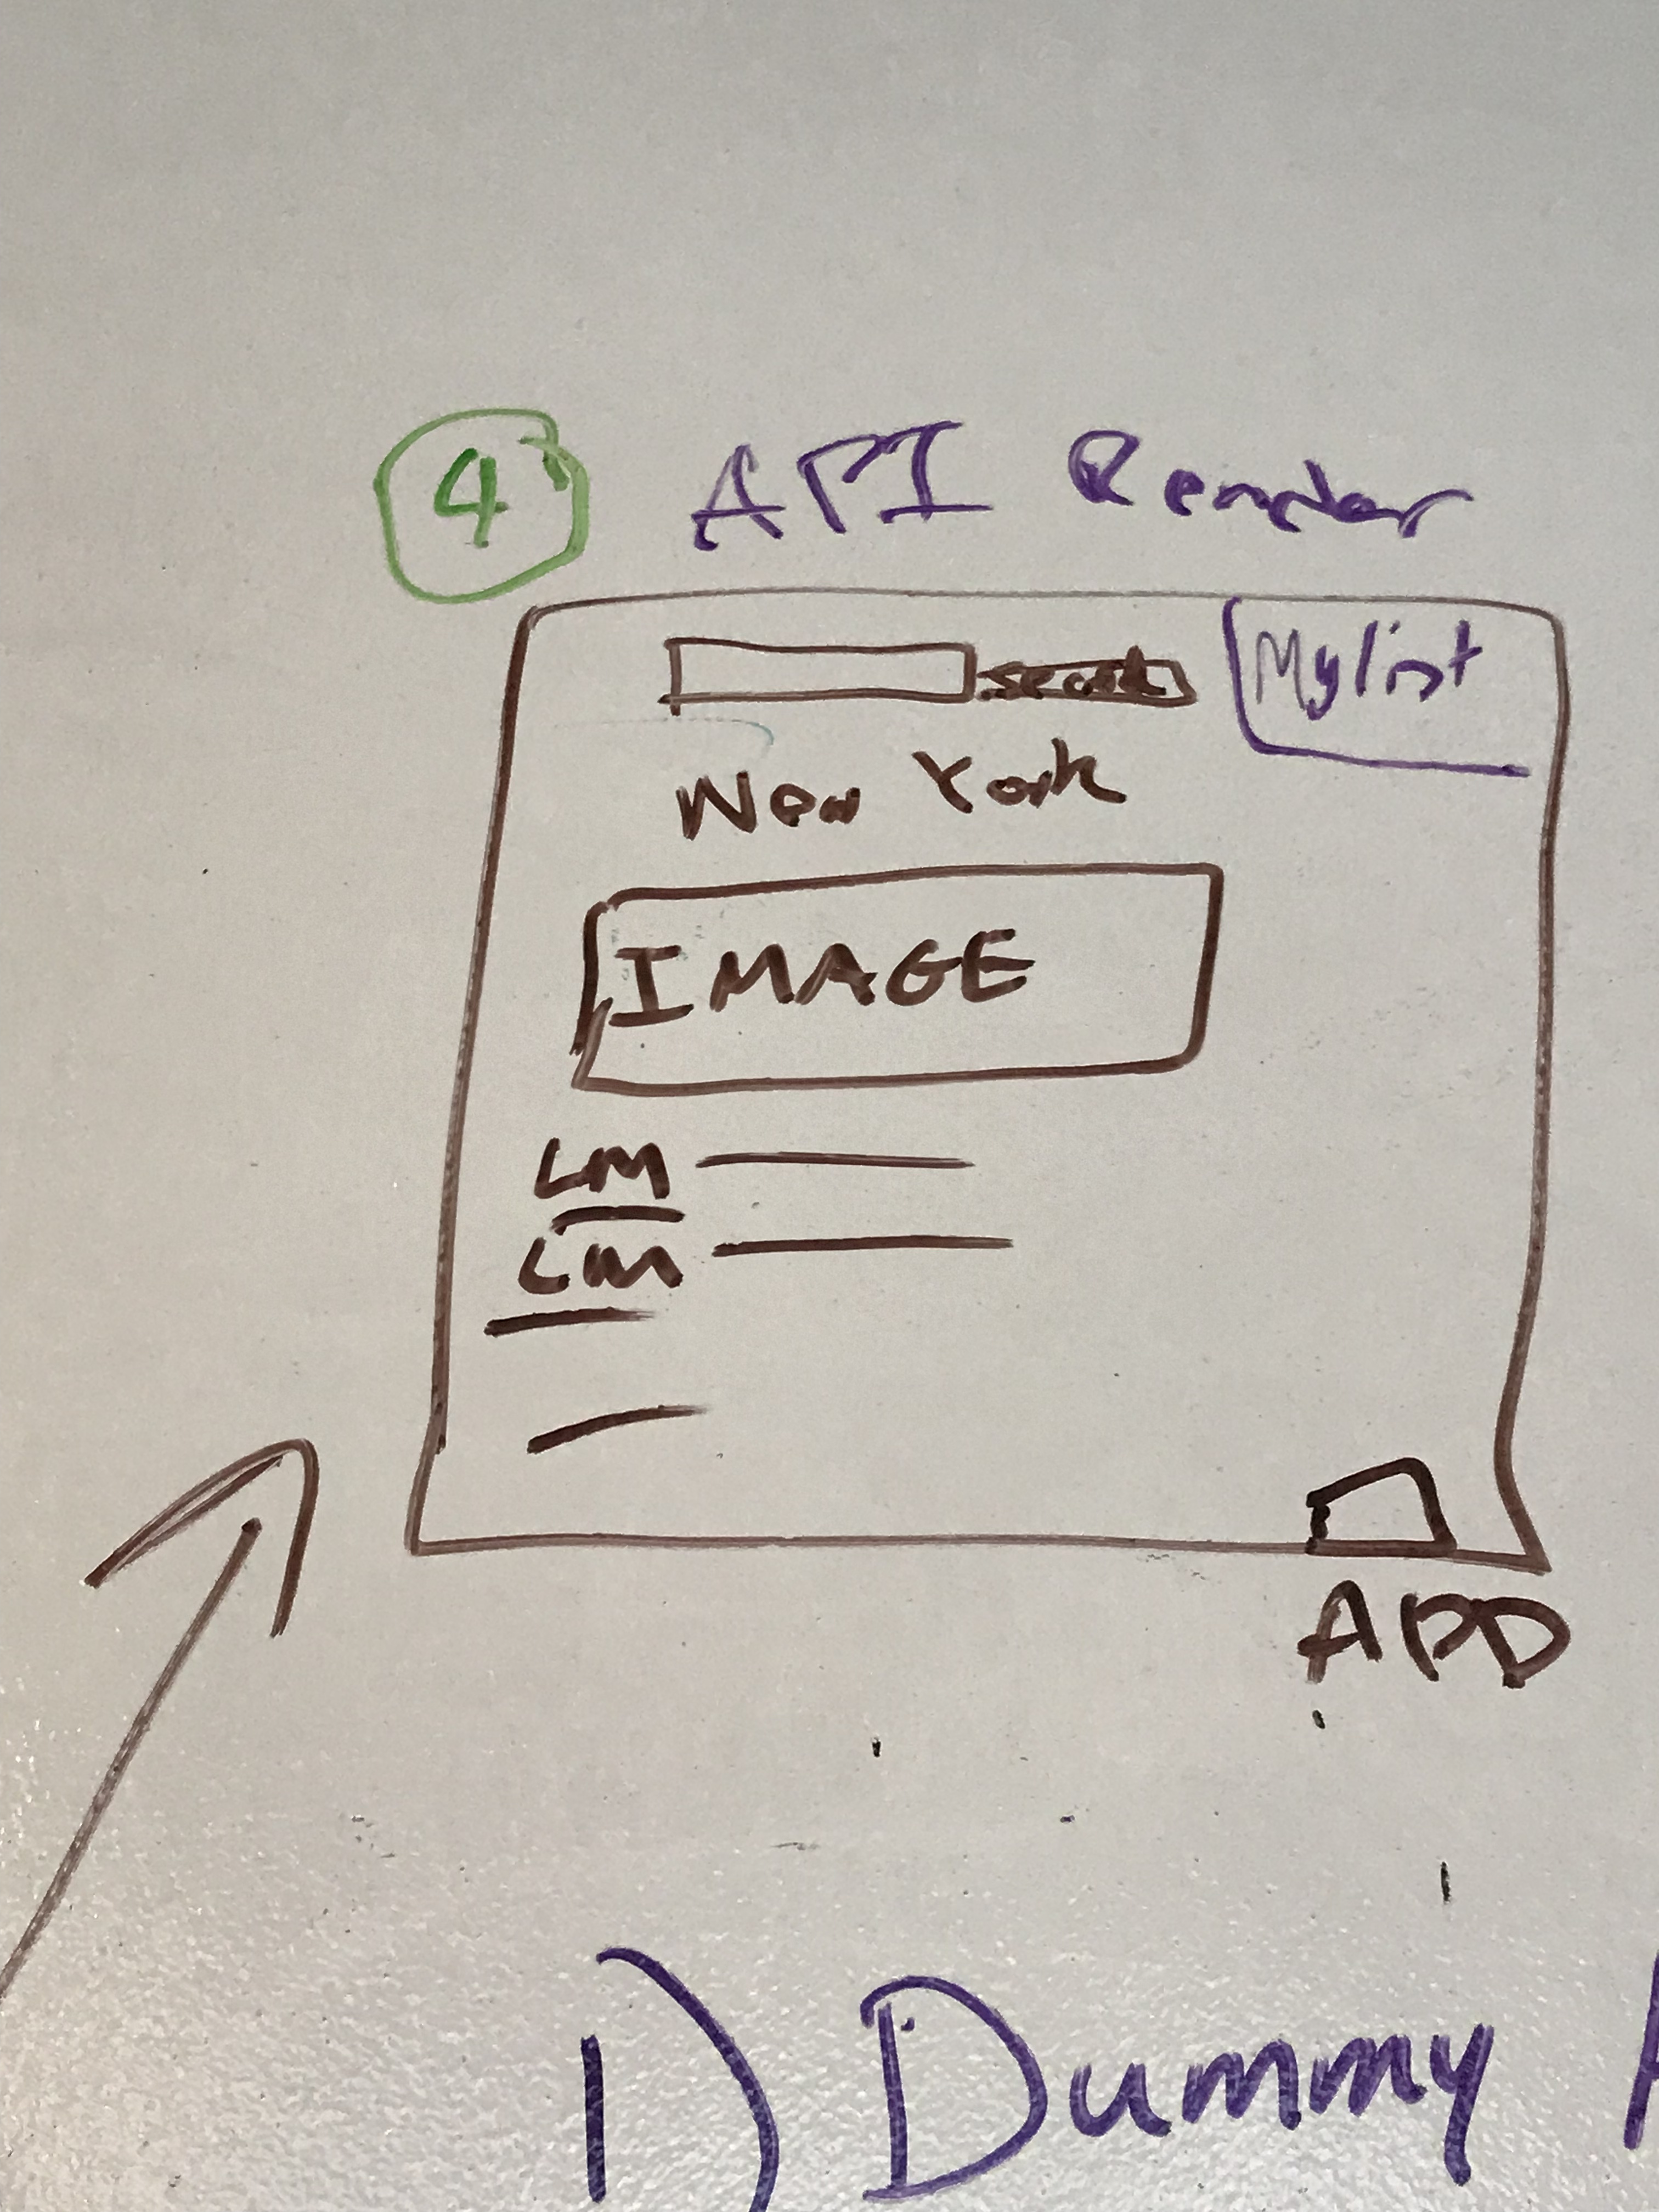 4 API Render
search Mylist
New York
IMAGE
LM
LM
ADD
1) Dummy